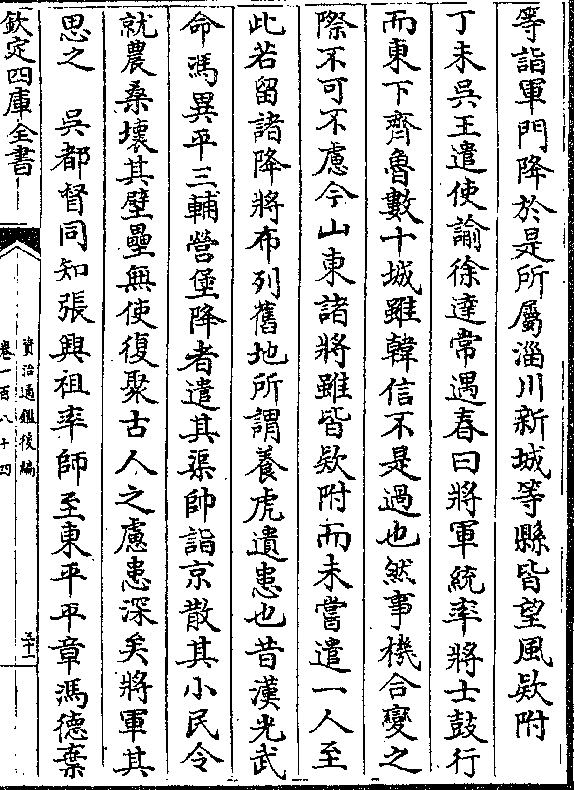 等詣軍門降於是所屬淄川新城等縣皆望風欵附
丁未吳王遣使諭徐達常遇春曰將軍統率將士鼓行
而東下齊魯數十城雖韓信不是過也然事機合變之
際不可不慮今山東諸將雖皆欵附而未嘗遣一人至
此若留諸降將布列舊地所謂養虎遺患也昔漢光武
命馮異平三輔營堡降者遣其渠帥詣京散其小民令
就農桑壞其壁壘無使復聚古人之慮患深矣將軍其
思之　吳都督同知張興祖率師至東平平章馮德棄
欽定四庫全書
資治通鑑後編
卷一百八十四
三十一